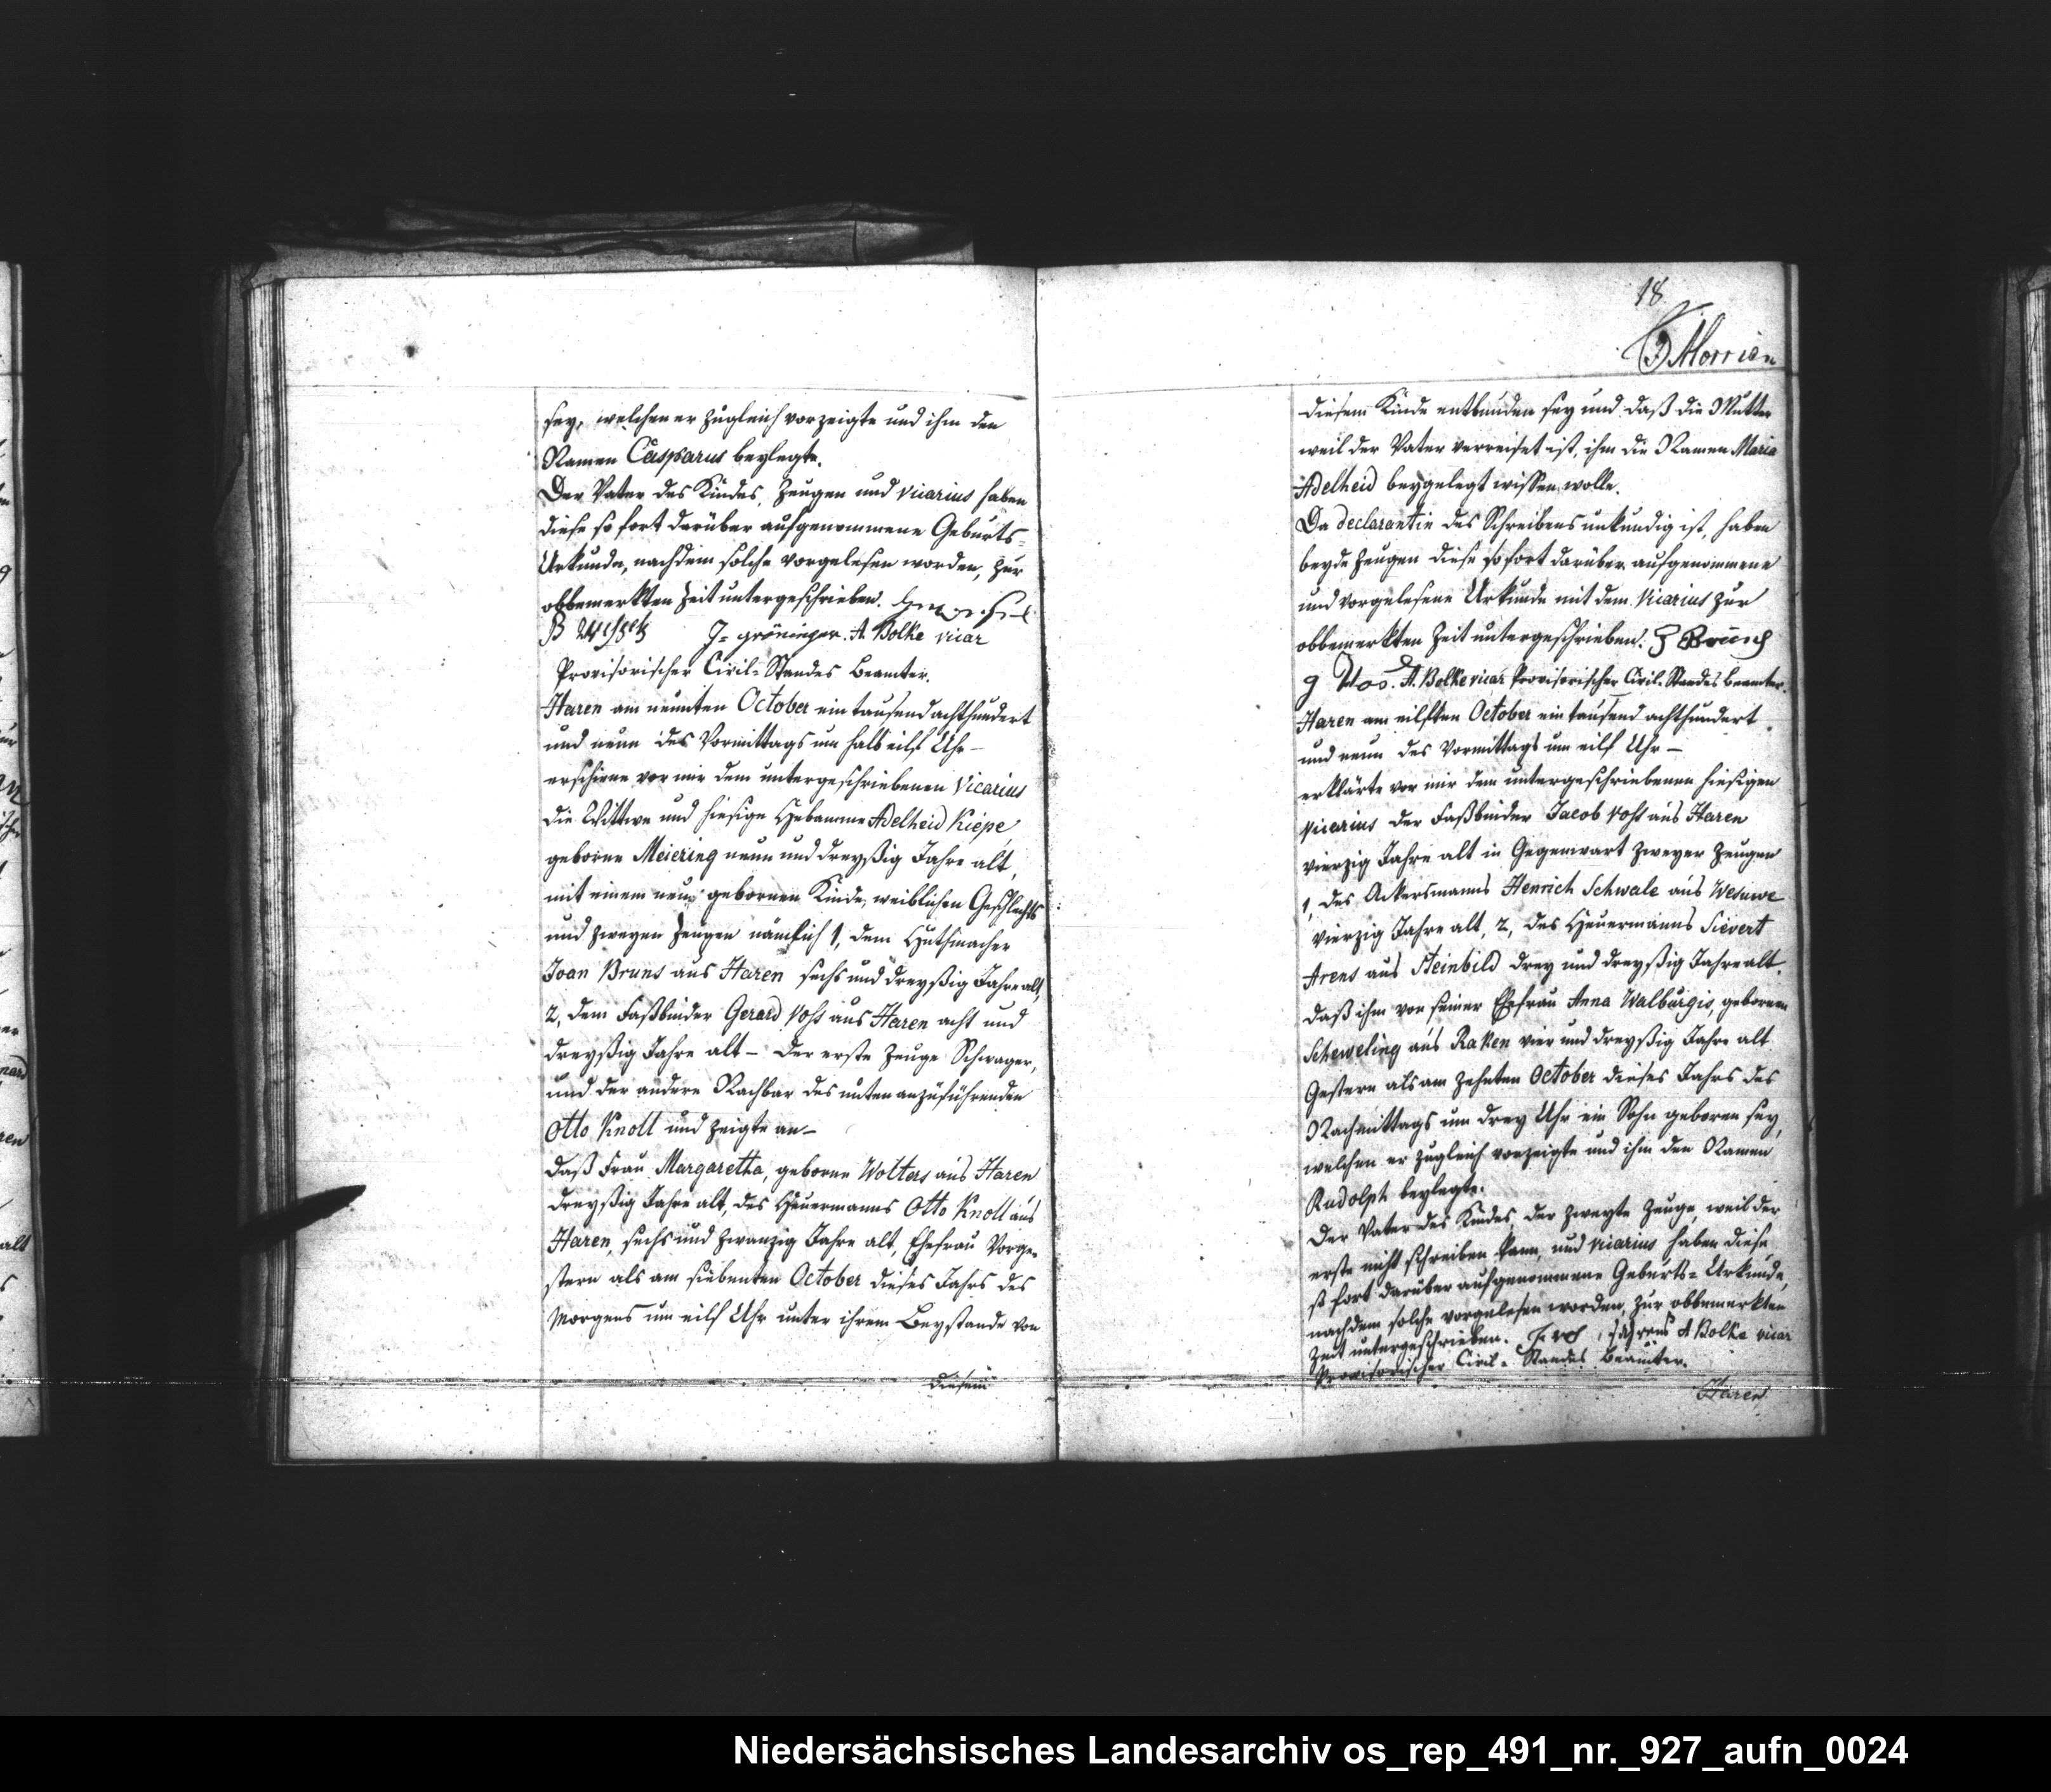 sey, welchen er zugleich vorzeigte und ihm den
Namen Casparus beylegte.
Der Vater des Kindes, Zeugen und Vicarius haben
diese so fort darüber aufgenommene Geburts-
Urkunde, nachdem solche vorgelesen worden, zur
obbemerkten Zeit untergeschrieben.
J= gröninger. A. Bolke vicar
Provisorischer Civil-Standes Beamter.
Haren am neunten October ein tausend achthundert
und neun des Vormittags um halb eilf Uhr –
erschiene vor mir dem untergeschriebenen Vicarius
die Wittwe und hiesige Hebamme Adelheid Kiepe
geborne Meiering neun und dreyßig Jahre alt,
mit einem neu gebornen Kinde, weiblichen Geschlechts
und zweyen Zeugen nämlich 1, dem Huthmacher
Joan Bruns aus Haren sechs und dreyßig Jahre alt,
2, dem Faßbinder Gerard Voss aus Haren acht und
dreyßig Jahre alt – Der erste Zeuge Schwager,
und der andere Nachbar des unten anzuführenden
Otto Knoll und zeigte an –
daß Frau Margaretha, geborne Wolters aus Haren
dreyßig Jahre alt, des Heuermanns Otto Knoll aus
Haren, sechs und zwanzig Jahre alt, Ehefrau Vorge-
stern als am siebenten October dieses Jahrs des
Morgens um eilf Uhr unter ihrem Beystande von
diesem
18
Morrien
diesem Kinde entbunden sey und daß die Mutter
weil der Vater verreiset ist, ihm die Namen Maria
Adelheid beygelegt wissen wolle.
Da declarantin des Schreibens unkundig ist, haben
beyde Zeugen diese so fort darüber aufgenommene
und vorgelesene Urkunde mit dem Vicarius zur
obbemerkten Zeit untergeschrieben. J Bruns
g Vos. A. Bolke vicar Provisorischer Civil-Standes Beamter.
Haren am eilften October ein tausend achthundert
und neun des Vormittags um eilf Uhr –
erklärte vor mir dem untergeschriebenen hiesigen
Vicarius der Faßbinder Jacob Voss aus Haren
vierzig Jahre alt in Gegenwart zweyer Zeugen
1, des Ackersmanns Henrich Schwale aus Wesuwe
vierzig Jahre alt, 2, des Heuermanns Sievert
Arens aus Steinbild drey und dreyßig Jahre alt.
daß ihm von seiner Ehefrau Anna Walburgis, gebornen
Scheweling aus Raken vier und dreyßig Jahre alt
Gestern als am zehnten October dieses Jahrs des
Nachmittags um drey Uhr ein Sohn geboren sey,
welchen er zugleich vorzeigte und ihm den Namen
Rudolph beylegte.
Der Vater des Kindes, der zweyte Zeuge, weil der
erste nicht schreiben kann, und Vicarius haben diese
so fort darüber aufgenommene Geburts-Urkunde,
nachdem solche vorgelesen worden, zur obbemerkten
Zeit untergeschrieben. A Bolke vicar
Provisorischer Civil-Standes Beamter.
Haren
Niedersächsisches Landesarchiv os_rep_491_nr._927_aufn_0024